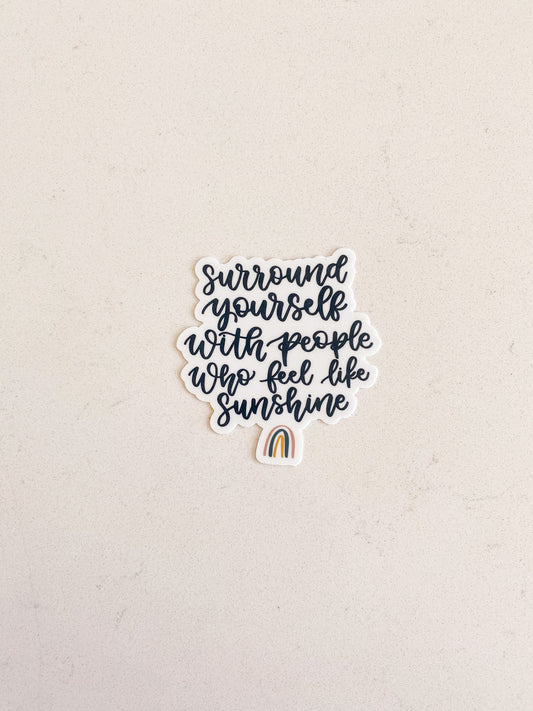 surround
yourself
with people
who feel like
sunshine